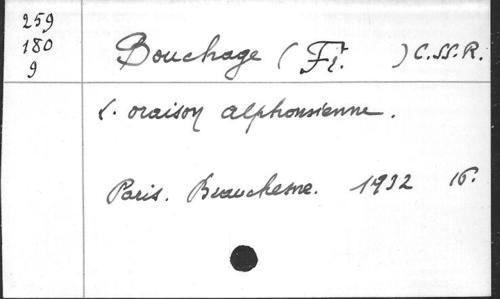 259
180
9
Bouchage (Fr. ) C.SS.R.
L. oraison alphonsienne.
Paris. Beauchesne. 1932 16.